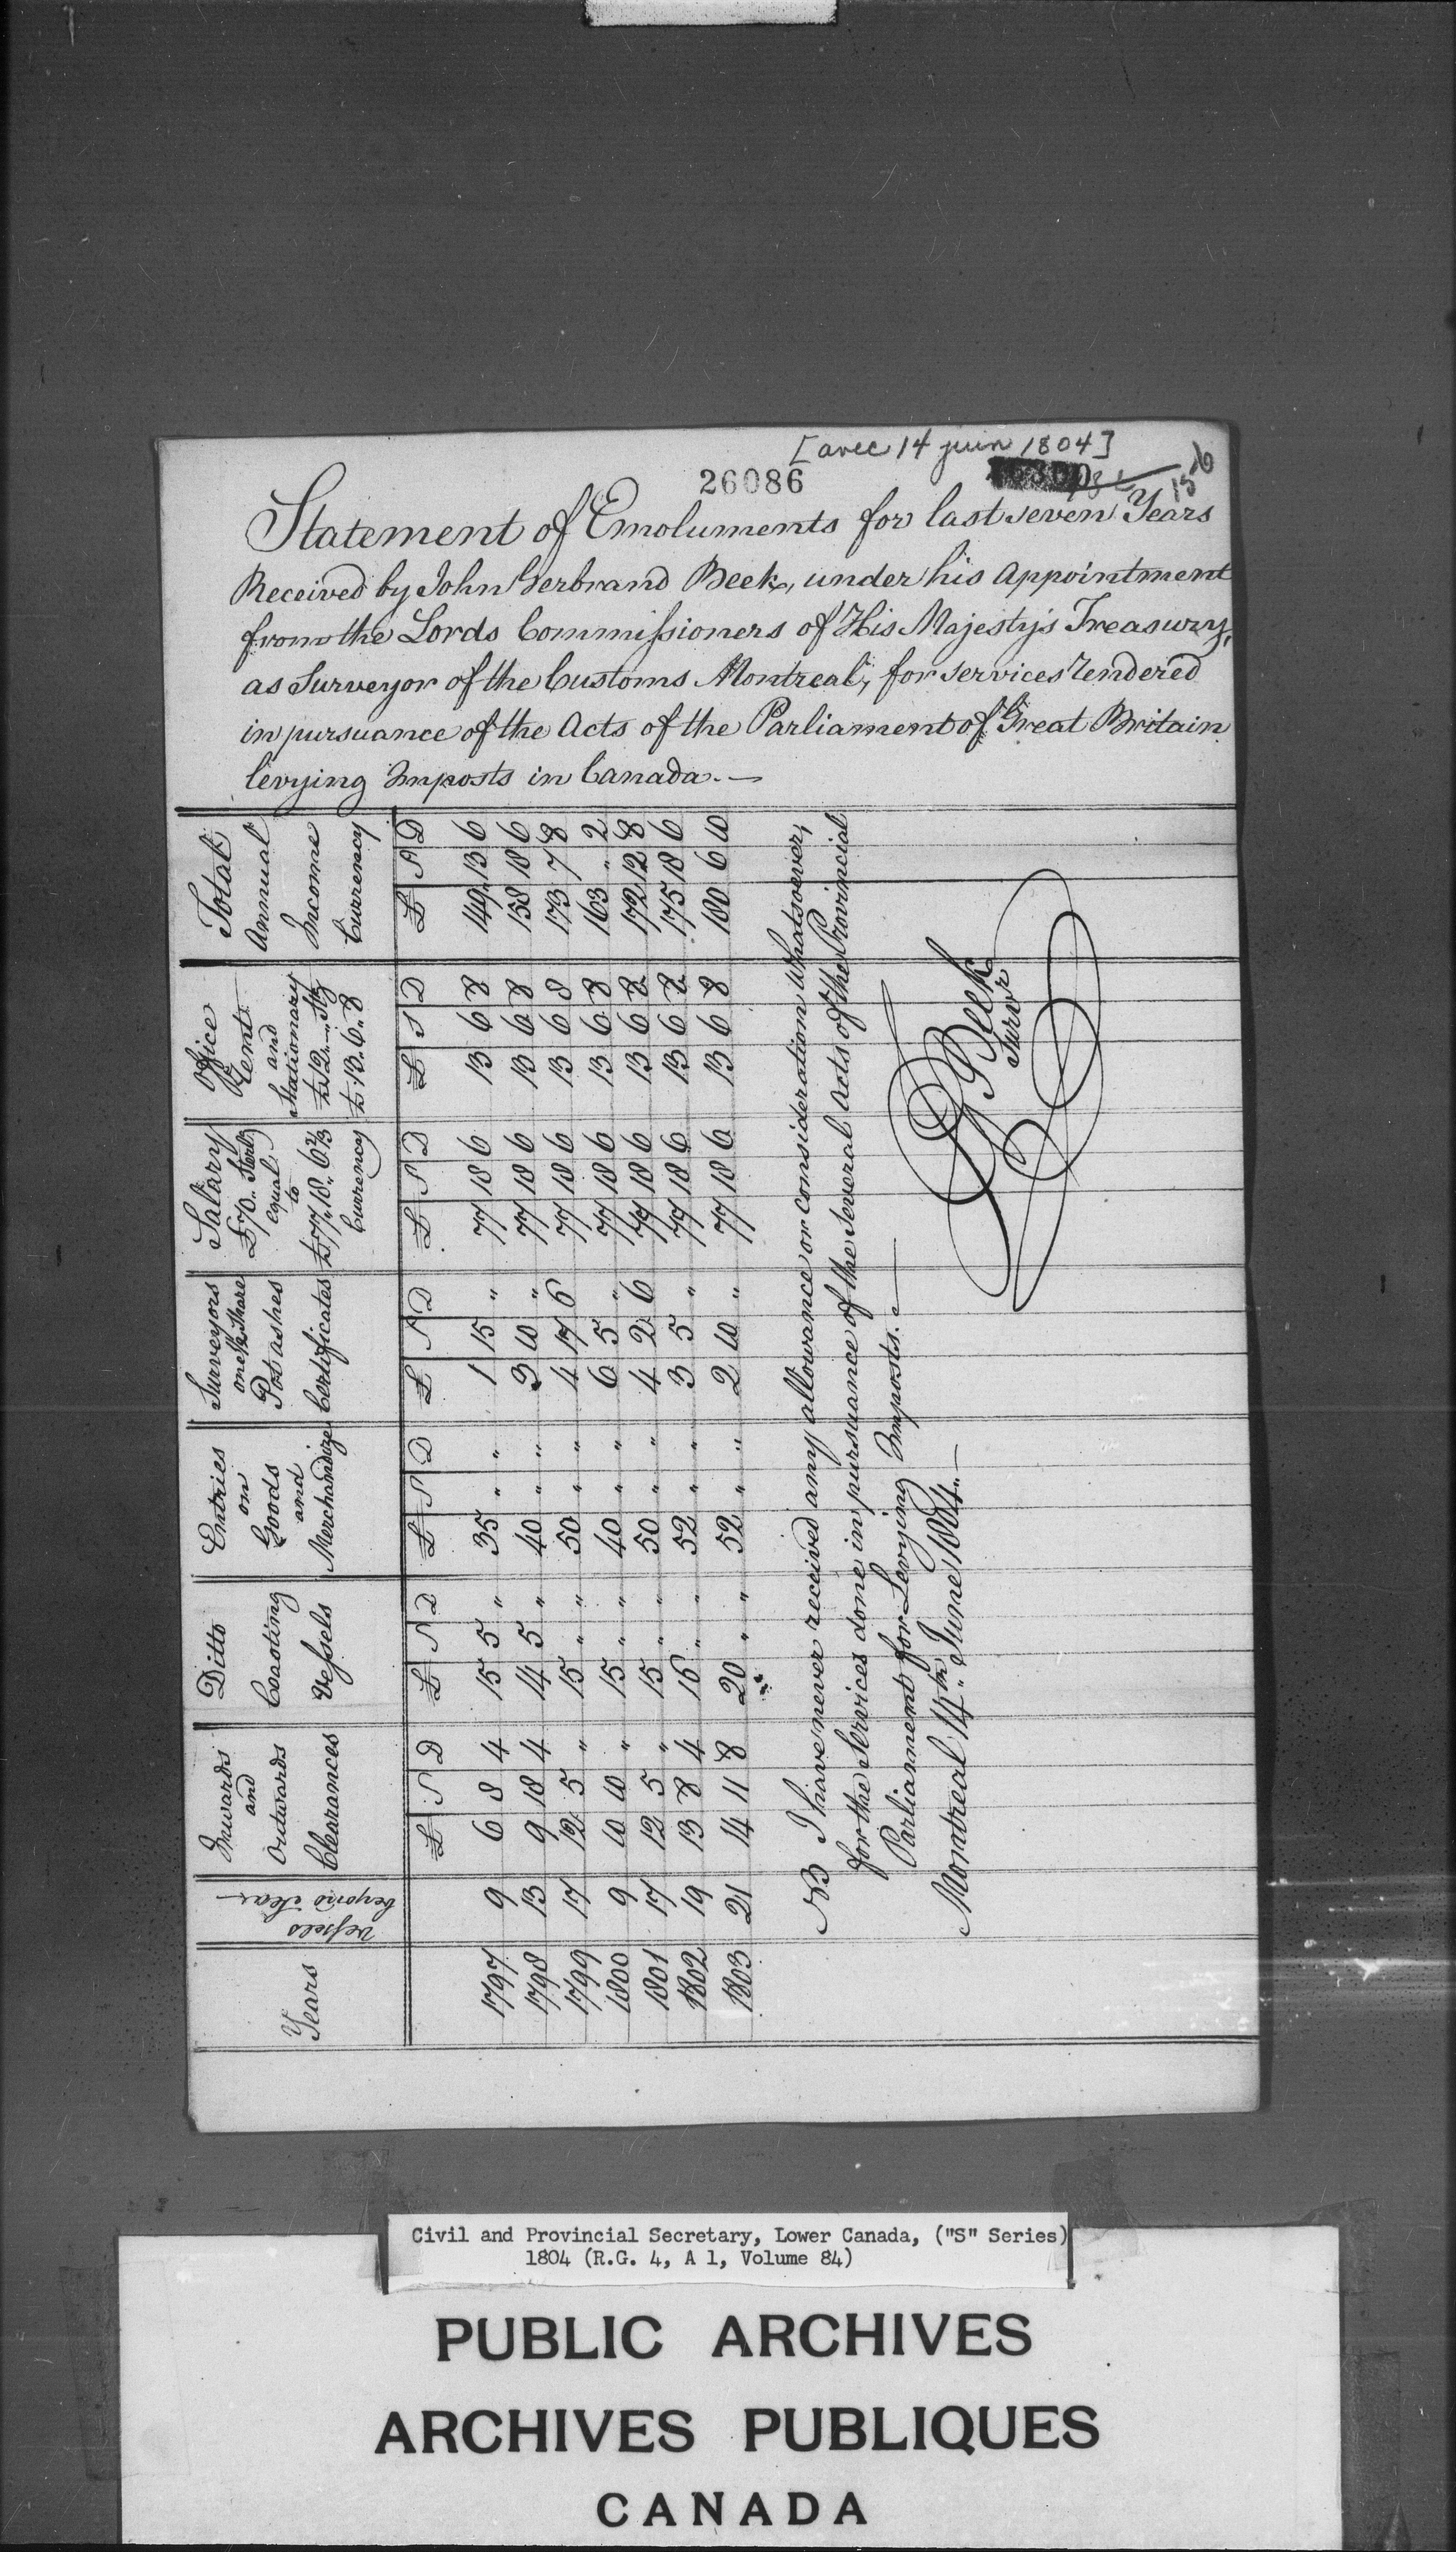 [avec 14 juin 1804]
26086
156
Statement of Emoluments for last seven Years
Received by John Gerbrand Beek, under his Appointment
from the Lords Commissioners of His Majesty's Treasury,
as Surveyor of the Customs Montreal, for services rendered
in pursuance of the Acts of the Parliament of Great Britain
levying Imposts in Canada.—
Years | Vessels beyond Sea | Inwards and Outwards Clearances | Ditto Coasting Vessels | Entries on Goods and Merchandize | Surveyors one Share Pot ashes Certificates | Salary £70.. Sterlg equal to £77..18..6 2/3 Currency | Office Rent and Stationary £12..... Stg £13..6..8 | Total Annual Income Currency
£ S D | £ S D | £ S D | £ S D | £ S D | £ S D | £ S D
1797 | 9 | 6 8 4 | 15 5 " | 35 " " | 1 15 " | 77 18 6 | 13 6 8 | 149 13 6
1798 | 13 | 9 18 4 | 14 5 " | 40 " " | 3 10 " | 77 18 6 | 13 6 8 | 158 18 6
1799 | 17 | 12 5 " | 15 " " | 50 " " | 4 17 6 | 77 18 6 | 13 6 8 | 173 7 8
1800 | 9 | 10 10 " | 15 " " | 40 " " | 6 5 " | 77 18 6 | 13 6 8 | 163 " 2
1801 | 17 | 12 5 " | 15 " " | 50 " " | 4 2 6 | 77 18 6 | 13 6 8 | 172 12 8
1802 | 19 | 13 8 4 | 16 " " | 52 " " | 3 5 " | 77 18 6 | 13 6 8 | 175 18 6
1803 | 21 | 14 11 8 | 20 " " | 52 " " | 2 10 " | 77 18 6 | 13 6 8 | 180 6 10
NB I have never received any allowance or consideration Whatsoever,
for the Services done in pursuance of the Several Acts of the Provincial
Parliament for Levying Imposts.—
Montreal 14th June 1804.—
JG Beek
Survr
Civil and Provincial Secretary, Lower Canada, ("S" Series)
1804 (R.G. 4, A 1, Volume 84)
PUBLIC ARCHIVES
ARCHIVES PUBLIQUES
CANADA